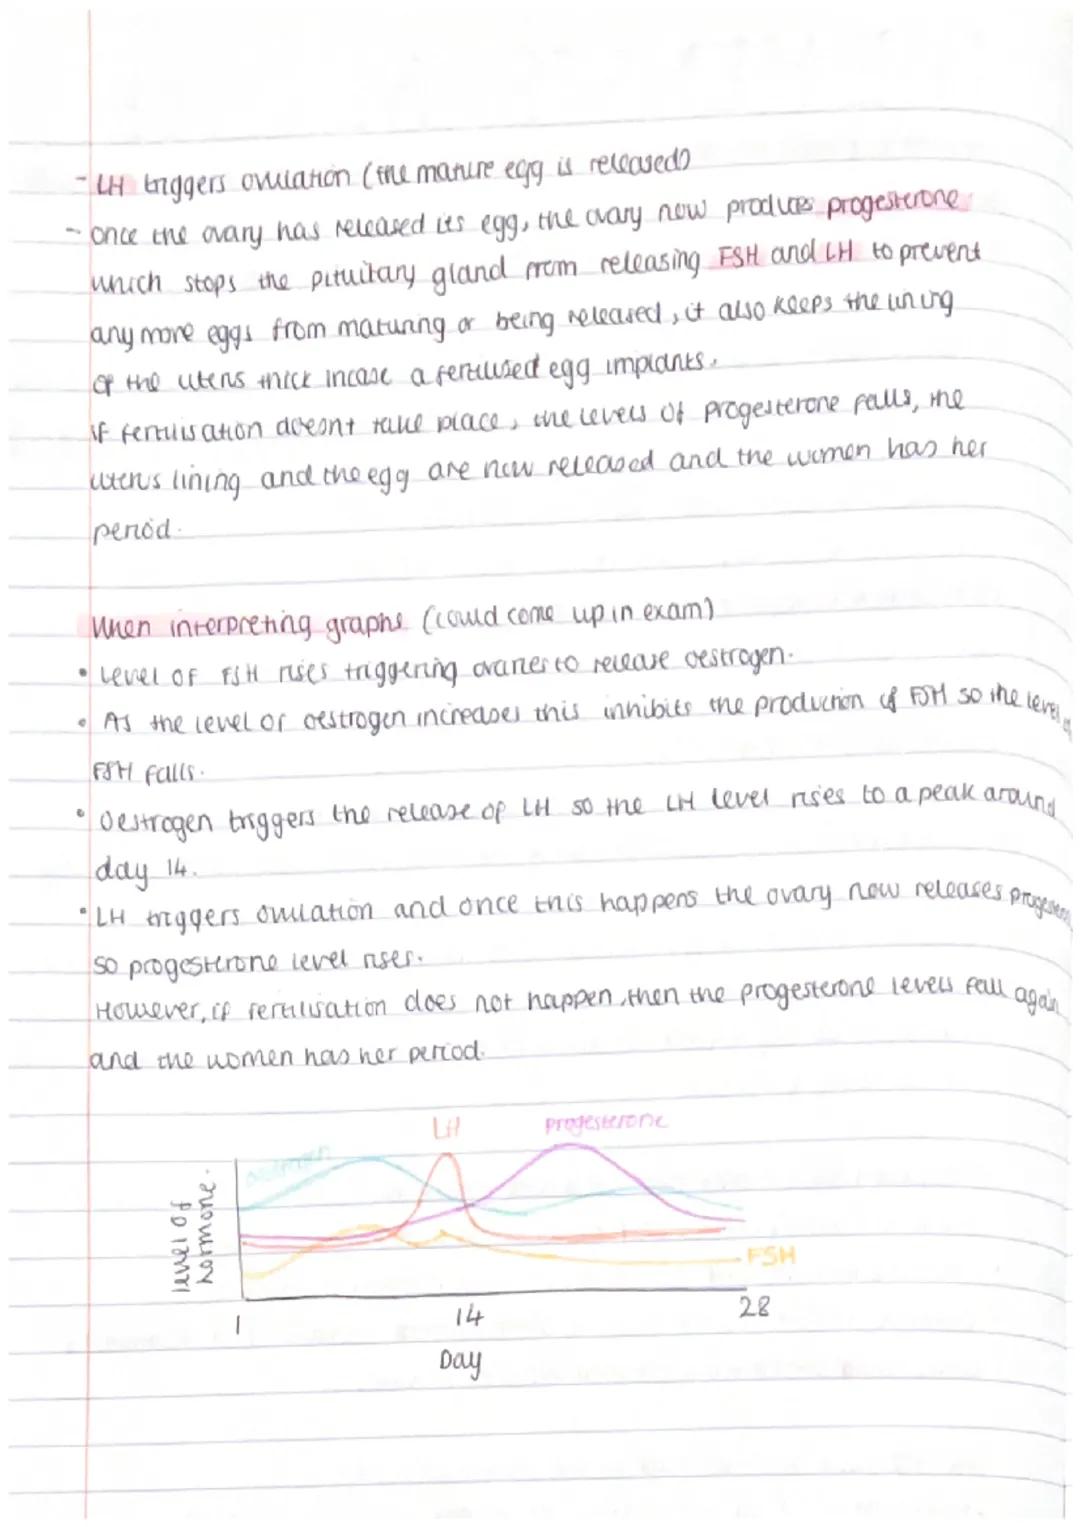 - LH triggers ovulation (the mature egg is released)
- once the ovary has released its egg, the ovary now produces progesterone
which stops the pituitary gland from releasing FSH and LH to prevent
any more eggs from maturing or being released, it also keeps the lining
of the uterus thick incase a fertilised egg implants.
if fertilisation doesnt take place, the levels of progesterone falls, the
uterus lining and the egg are now released and the women has her
period.
When interpreting graphs (could come up in exam)
• Level of FSH rises triggering ovaries to release oestrogen.
• As the level of oestrogen increases this inhibits the production of FSH so the level of
FSH falls.
• Oestrogen triggers the release of LH so the LH level rises to a peak around
day 14.
• LH triggers ovulation and once this happens the ovary now releases progesterone
so progesterone level rises.
However, if fertilisation does not happen, then the progesterone levels fall again
and the women has her period.
LH
progesterone
oestrogen
level of
hormone.
FSH
1
14
28
Day